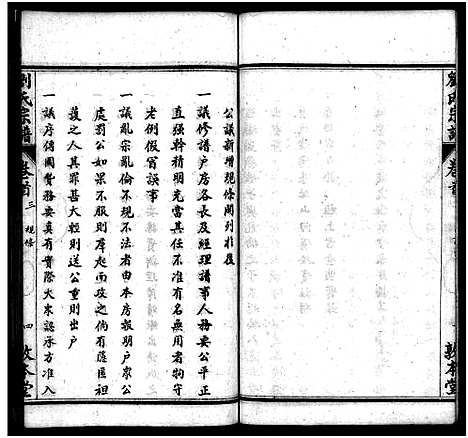 劉氏宗譜
卷首
敦本堂
公議新增規條開列於後
一議修譜户房各長及經理譜事人務要公平正
直强幹精明克當其任不准有名無用者拘守
老例假冒誤事
一議亂宗亂倫不規不法者由本房報明户衆公
處罰公如果不服則羣起而攻之倘有蔭庇袒
護之人其罪甚大輕則送公重則出户
一議序傳圖贊務要真有實際大衆認承方准入
劉氏宗譜
卷首
三
規條
四
敦本堂